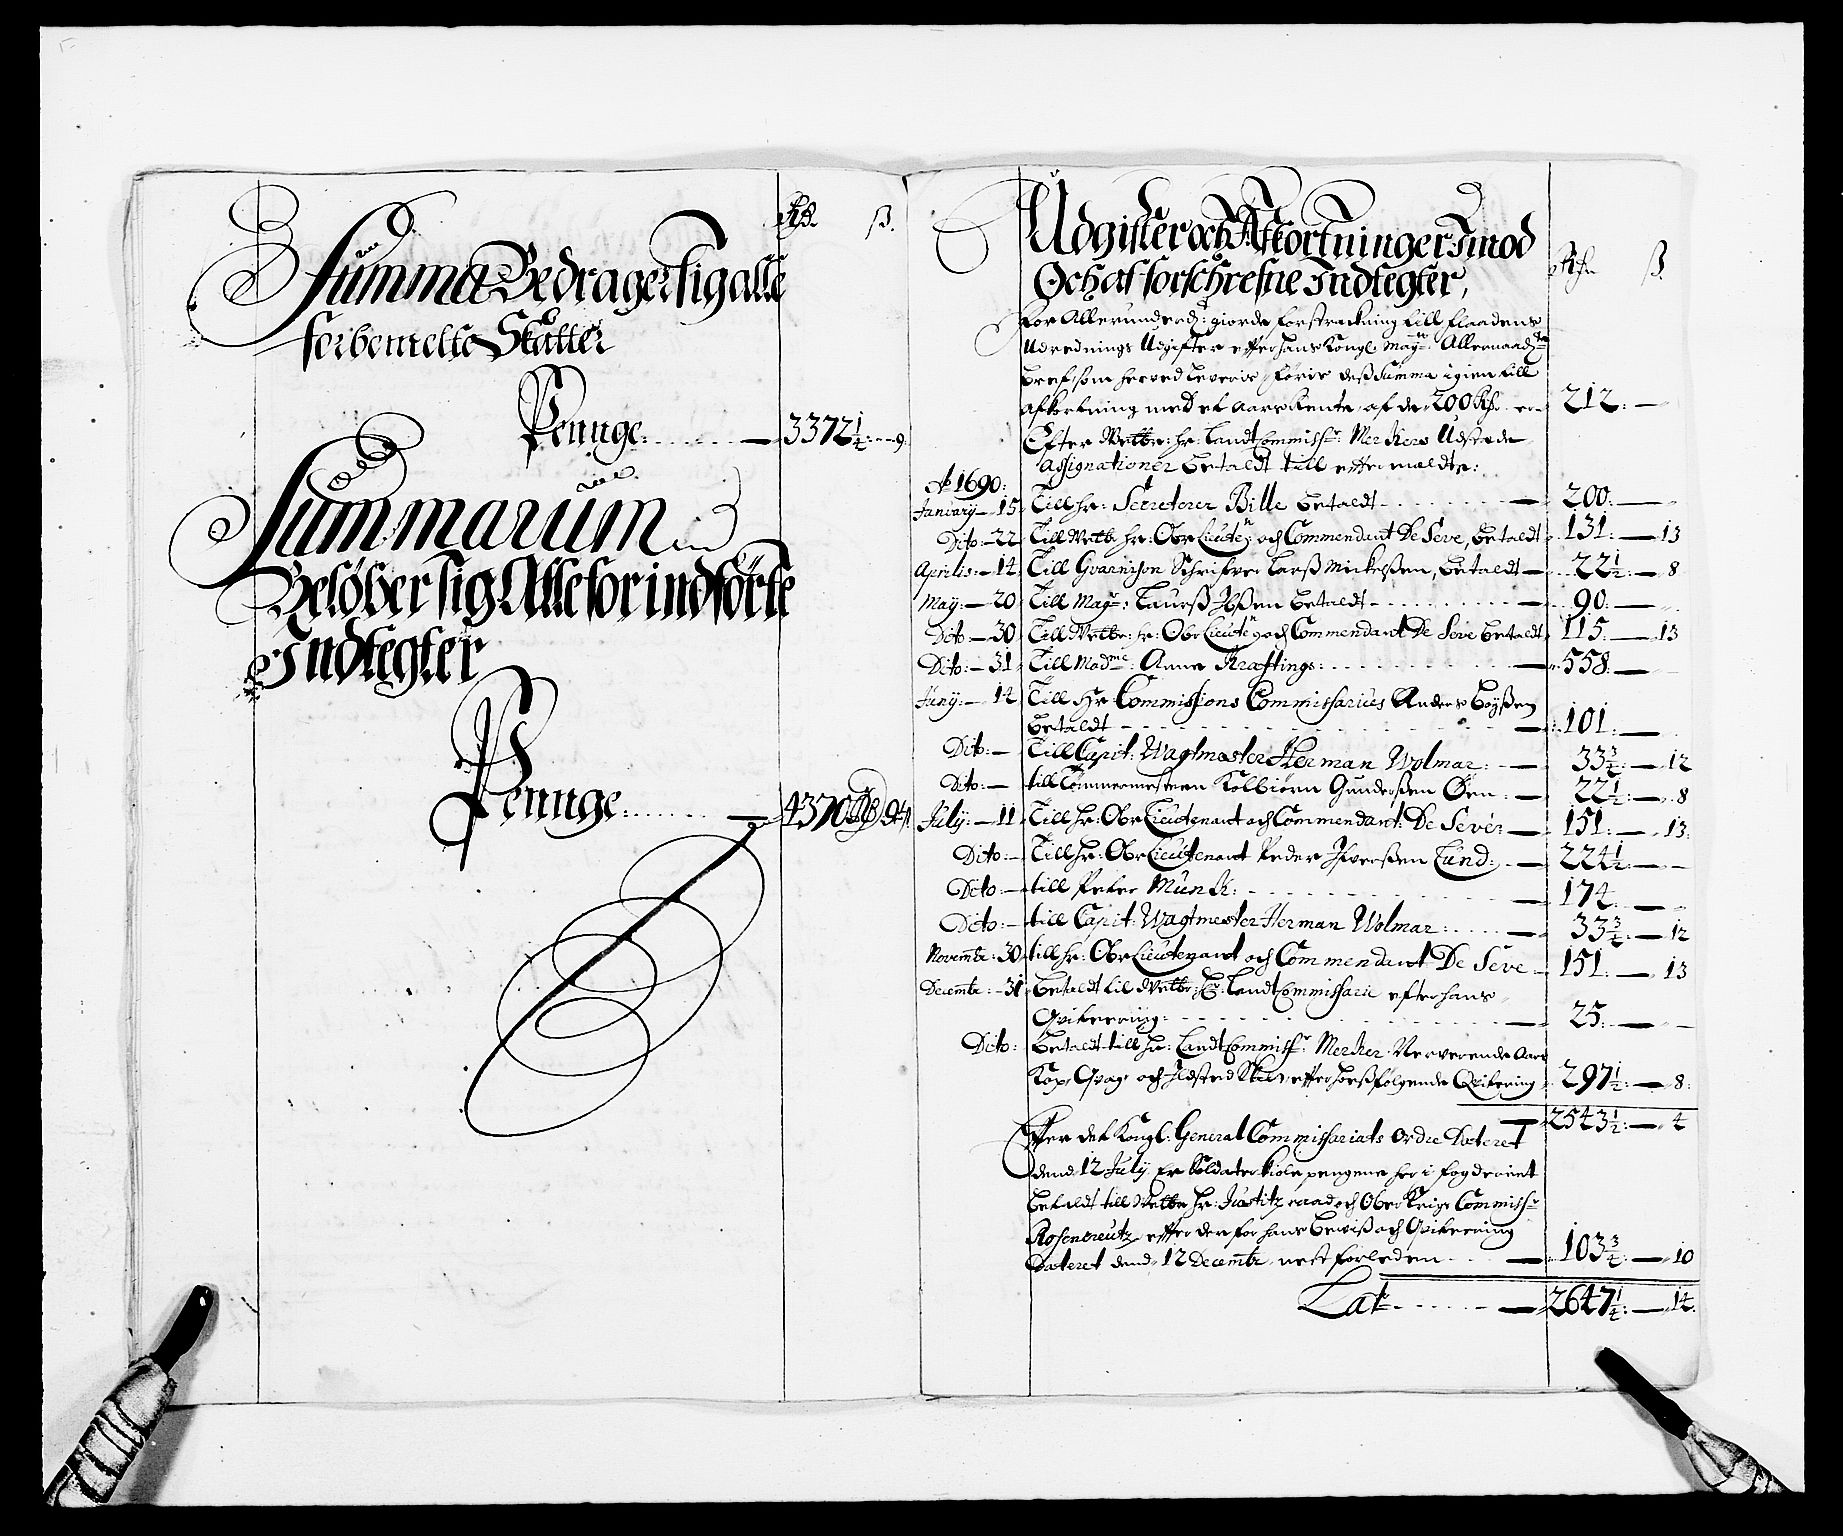 Rdr. ß.
Summa Bedrager sig alle
forbemelte Skatter
Penge: 3372¼: 9
Summarum
Beløber sig Alle for indførte
Indtegter
Penge: 4370 Rdr 9½ ß
Udgifter och Afkortninger Imod
Och af forschrefne Indtegter,
Rdr ß.
For Allerunderd: giorde forstrackning till flaadens
Udrednings Udgifter efter hans Kongl. May: Allernaad:
bref som herved leveris, føris deß Summa igien till
afkortning med et aars Rente af de 200 Rdr. er 212:
Efter Welbr: hr: Landt Commissr: Merkers Udstæde
Assignationer betaldt till eftermeldte:
Ao 1690:
January 15 Till hr: Secreterer Bille betaldt 200:
Dito 22 Till Welb: hr: Obr Lieuten: och Commendant De Seve, betaldt 131: 13
Aprilis: 14 Till Guarnison Schrifver Larß Mickelßen, betaldt 22½ 8
May: 20 Till Mag: Laurß Ibßen betaldt 90:
Dito 30 Till Welbr: hr: Obr Lieuten och Commendant De Seve betaldt 115: 13
Dito: 31 Till Madme: Anna Kraftings: 558
Juny: 14 Till Hr Commissions Commissarius Anders Bøyßen
betaldt 101:
Dito: Till Capit: Wagtmester Herman Wolmar: 33¾: 12
Dito: till Tømmermesteren Kolbiørn Gunderßen Øen: 22½: 8
July: 11 Till hr: Obr Lieutenant och Commendant: De Seve: 151: 13
Dito: Till hr: Obr Lieutenant Peder Ifverßen Lund: 224½:
Dito: till Peter Munck: 174
Dito: till Capit: Wagtmester Herman Wolmar: 33¾: 12
Novembr: 30 till hr: Obr Lieutenant och Commendant De Seve 151: 13
Decembr: 31 betaldt til Welbr: Hr: Landt Commissarie efter hans
Qvitering: 25:
Dito: betaldt till hr: Landt Commissr: Merker Nerverende Aars
Kop, Qvæg och Ildsted Skatt, efter hosfølgende Qvitering 297½: 8:
2543½: 4
Efter det Kongl: General Commissariats Ordre Dateret
dend 12 July Er Soldater kiole pengene her i fogderiet
betaldt till Welbr hr: Justitz raad och Ober Krigs Commissr
Rosencreutz, efter derfor hans beviß och Qvitering
Dateret dend 12 Decembr nest forleden 103¾: 10
Latr 2647¼: 14